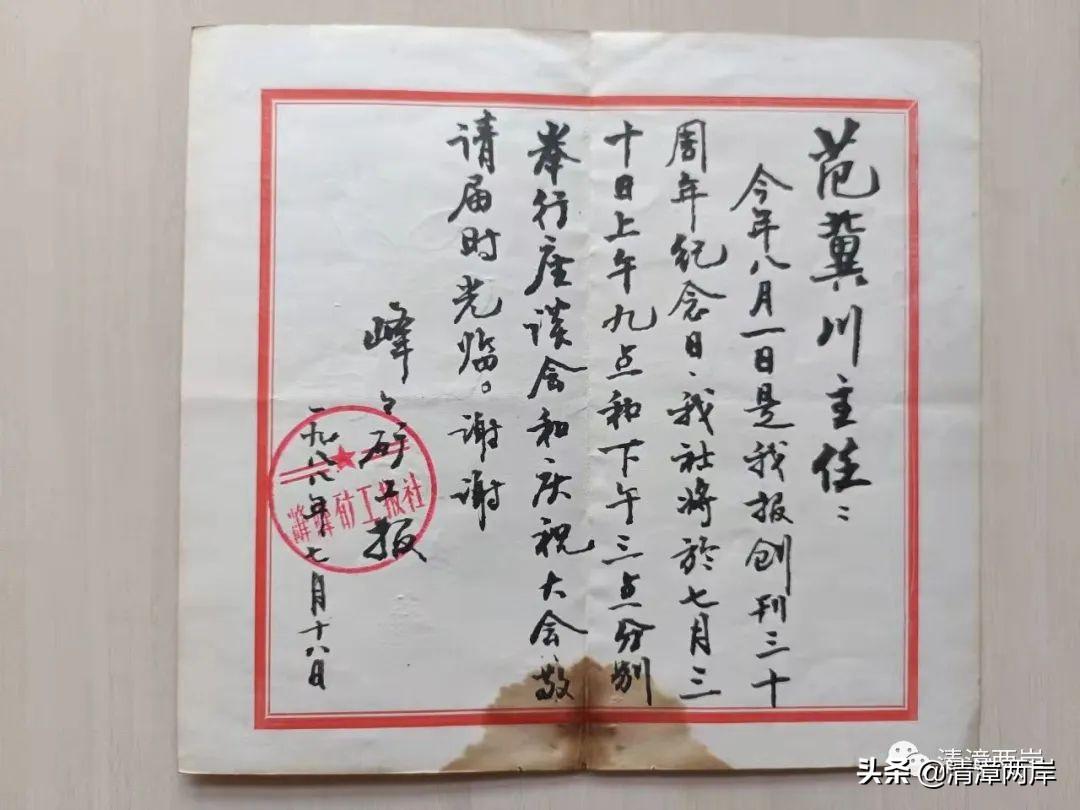 范冀川主任：
今年八月一日是我报创刊三十
周年纪念日、我社将於七月三
十日上午九点和下午三点分别
举行座谈会和庆祝大会、敬
请届时光临。谢谢
峰々矿工报
一九八八年七月十八日
峰峰矿工报社
清漳两岸
头条@清漳两岸